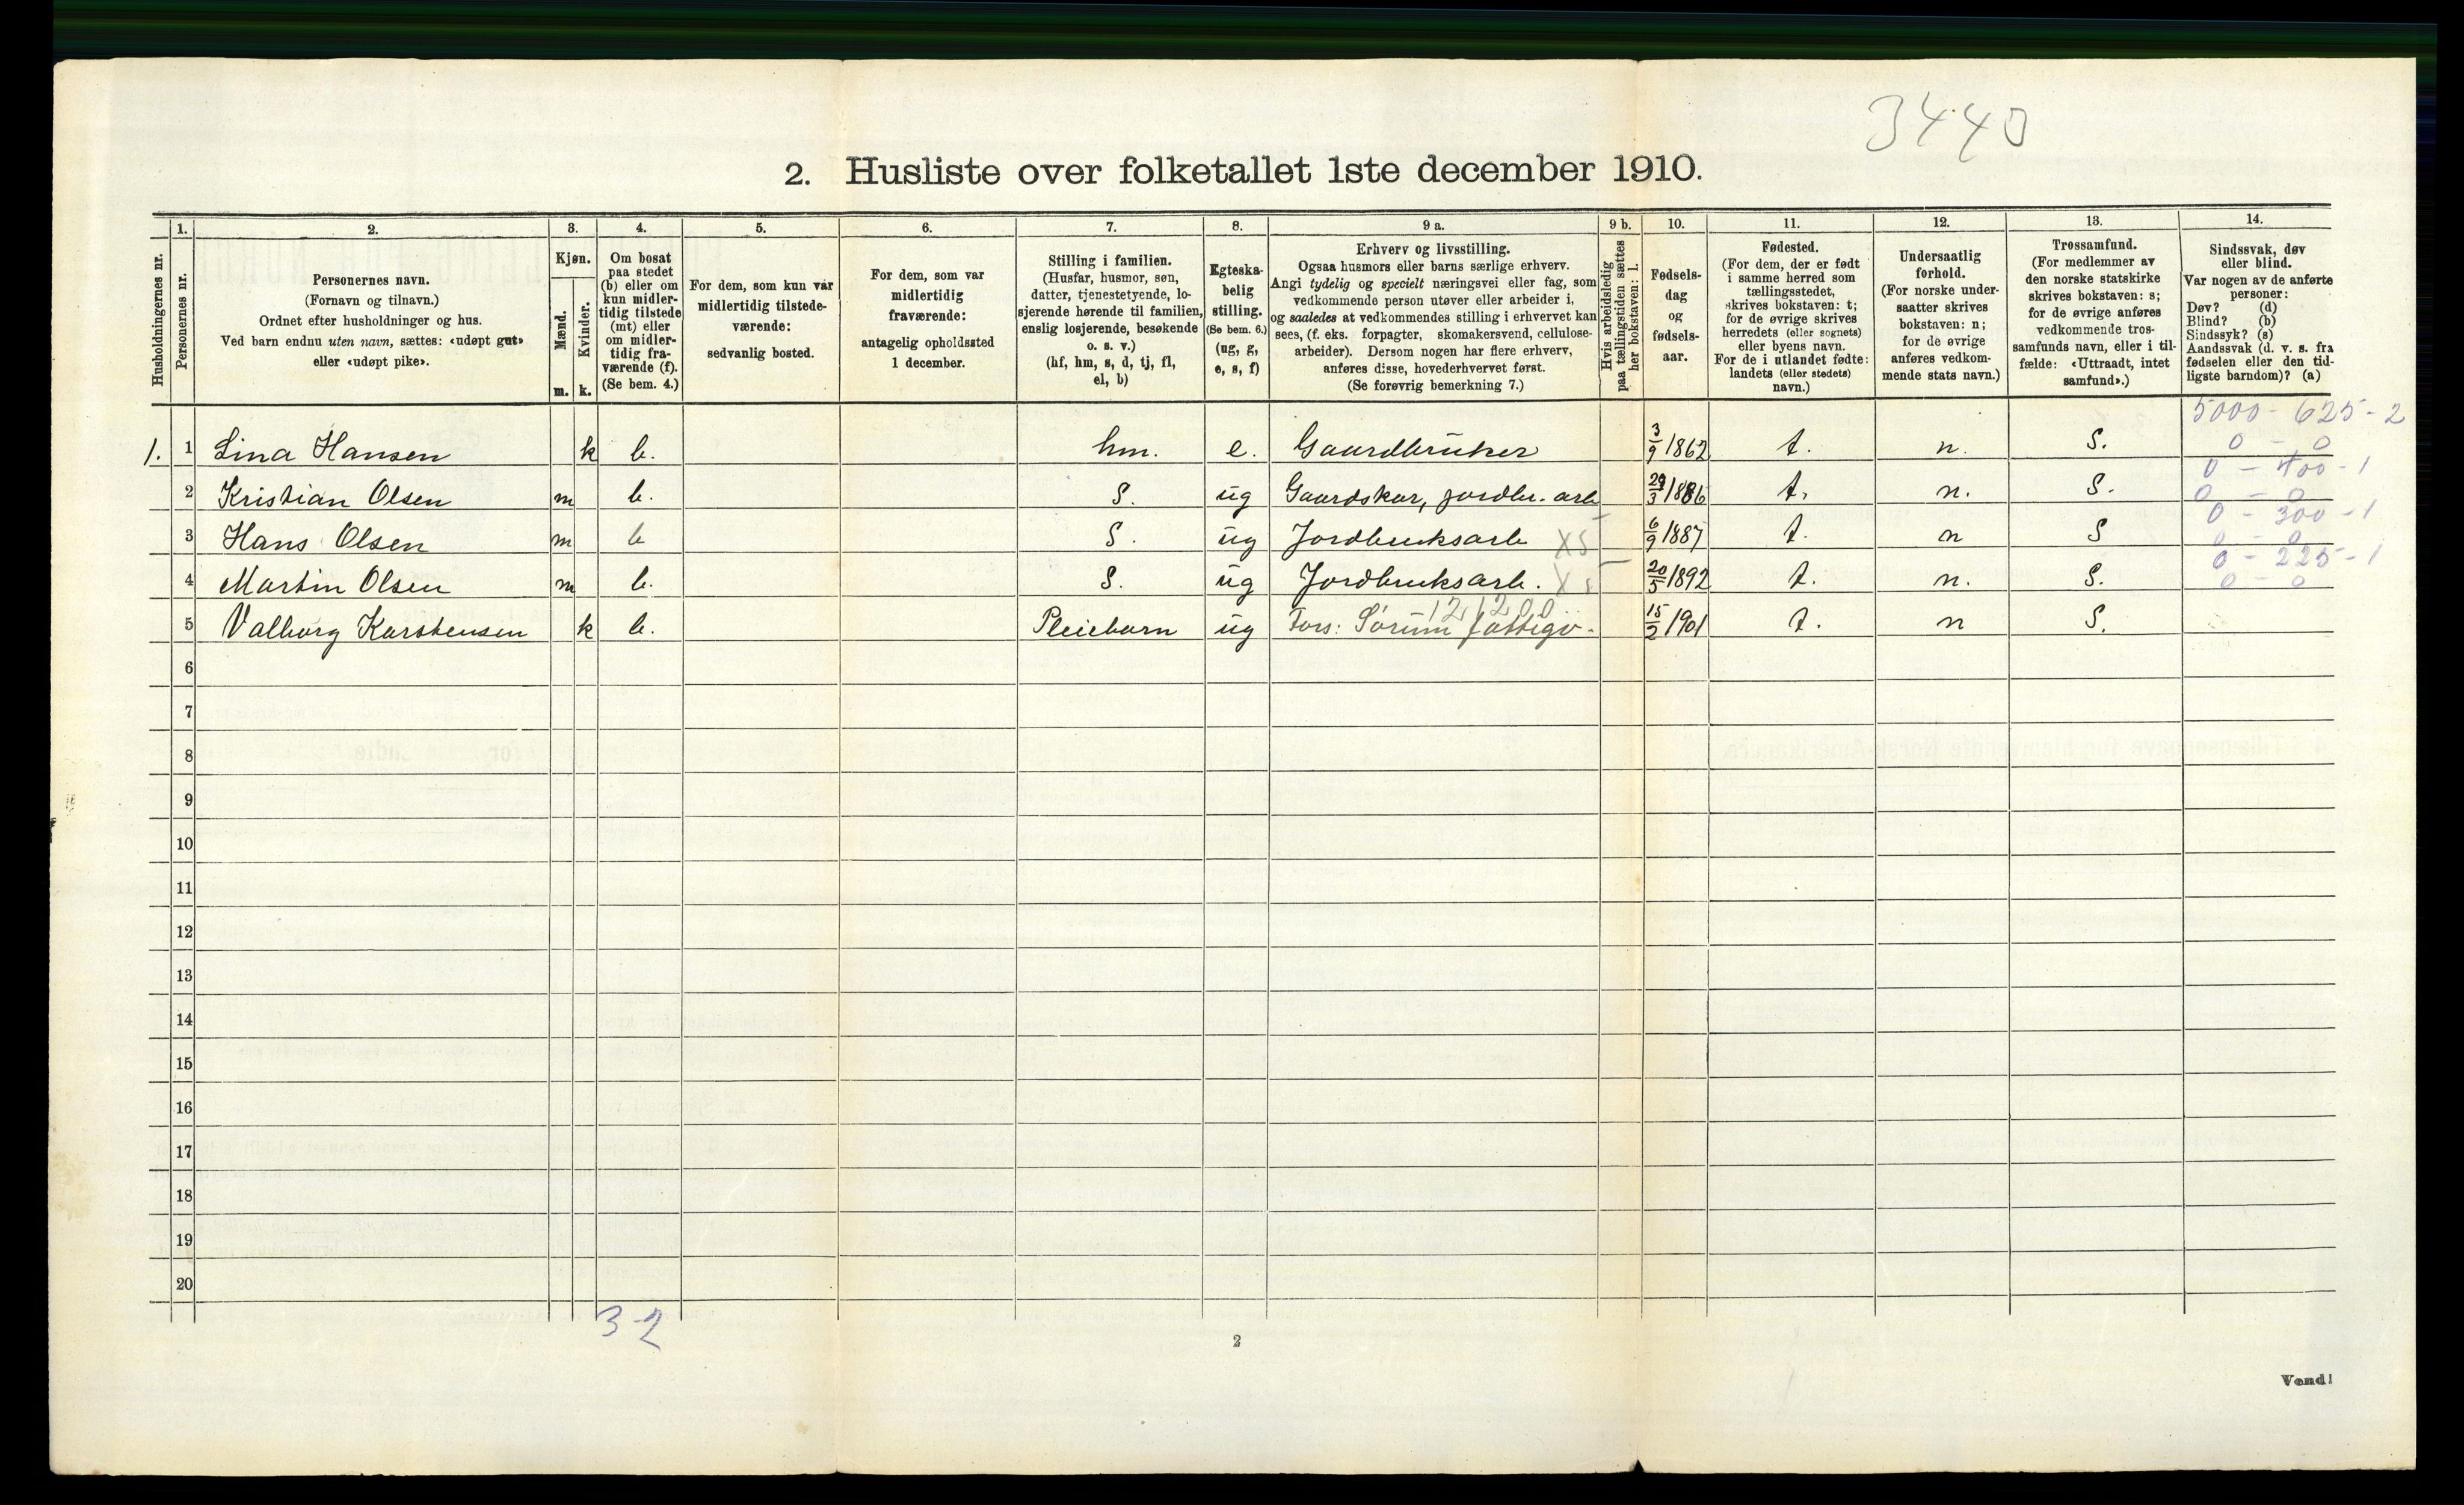 3440
2. Husliste over folketallet 1ste december 1910.
Husholdningernes nr.
1.
Personernes nr.
2.
Personernes navn.
(Fornavn og tilnavn.)
Ordnet efter husholdninger og hus.
Ved barn endnu uten navn, sættes: «udøpt gut»
eller «udøpt pike».
3.
Kjøn.
Mænd.
Kvinder.
m. k.
4.
Om bosat
paa stedet
(b) eller om
kun midler-
tidig tilstede
(mt) eller
om midler-
tidig fra-
værende (f).
(Se bem. 4.)
5.
For dem, som kun var
midlertidig tilstede-
værende:
sedvanlig bosted.
6.
For dem, som var
midlertidig
fraværende:
antagelig opholdssted
1 december.
7.
Stilling i familien.
(Husfar, husmor, søn,
datter, tjenestetyende, lo-
sjerende hørende til familien,
enslig losjerende, besøkende
o. s. v.)
(hf, hm, s, d, tj, fl,
el, b)
8.
Egteska-
belig
stilling.
(Se bem. 6.)
(ug, g,
e, s, f)
9 a.
Erhverv og livsstilling.
Ogsaa husmors eller barns særlige erhverv.
Angi tydelig og specielt næringsvei eller fag, som
vedkommende person utøver eller arbeider i,
og saaledes at vedkommendes stilling i erhvervet kan
sees, (f. eks. forpagter, skomakersvend, cellulose-
arbeider). Dersom nogen har flere erhverv,
anføres disse, hovederhvervet først.
(Se forøvrig bemerkning 7.)
9 b.
Hvis arbeidsledig
paa tællingstiden sættes
her bokstaven: l.
10.
Fødsels-
dag
og
fødsels-
aar.
11.
Fødested.
(For dem, der er født
i samme herred som
tællingsstedet,
skrives bokstaven: t;
for de øvrige skrives
herredets (eller sognets)
eller byens navn.
For de i utlandet fødte:
landets (eller stedets)
navn.)
12.
Undersaatlig
forhold.
(For norske under-
saatter skrives
bokstaven: n;
for de øvrige
anføres vedkom-
mende stats navn.)
13.
Trossamfund.
(For medlemmer av
den norske statskirke
skrives bokstaven: s;
for de øvrige anføres
vedkommende tros-
samfunds navn, eller i til-
fælde: «Uttraadt, intet
samfund».)
14.
Sindssvak, døv
eller blind.
Var nogen av de anførte
personer:
Døv? (d)
Blind? (b)
Sindssyk? (s)
Aandssvak (d. v. s. fra
fødselen eller den tid-
ligste barndom)? (a)
5000 - 625 - 2
1. 1 Lina Hansen k b. hm. e. Gaardbruker 3/9 1862 t. n. S. 0 - 0
0 - 400 - 1
2 Kristian Olsen m b. S. ug Gaardskar, jordbr. arb 29/3 1886 t. n. S. 0 - 0
0 - 300 - 1
3 Hans Olsen m b S. ug Jordbruksarb XS 6/9 1887 t. n S 0 - 0
0 - 225 - 1
4 Martin Olsen m b. S. ug Jordbruksarb. X s 20/5 1892 t. n. S. 0 - 0
12 1200
5 Valborg Karstensen k b. Pleiebarn ug Fors: Sørum fattigv. 15/2 1901 t. n S.
6
7
8
9
10
11
12
13
14
15
16
17
18
19
20
3-2
2
Vend!